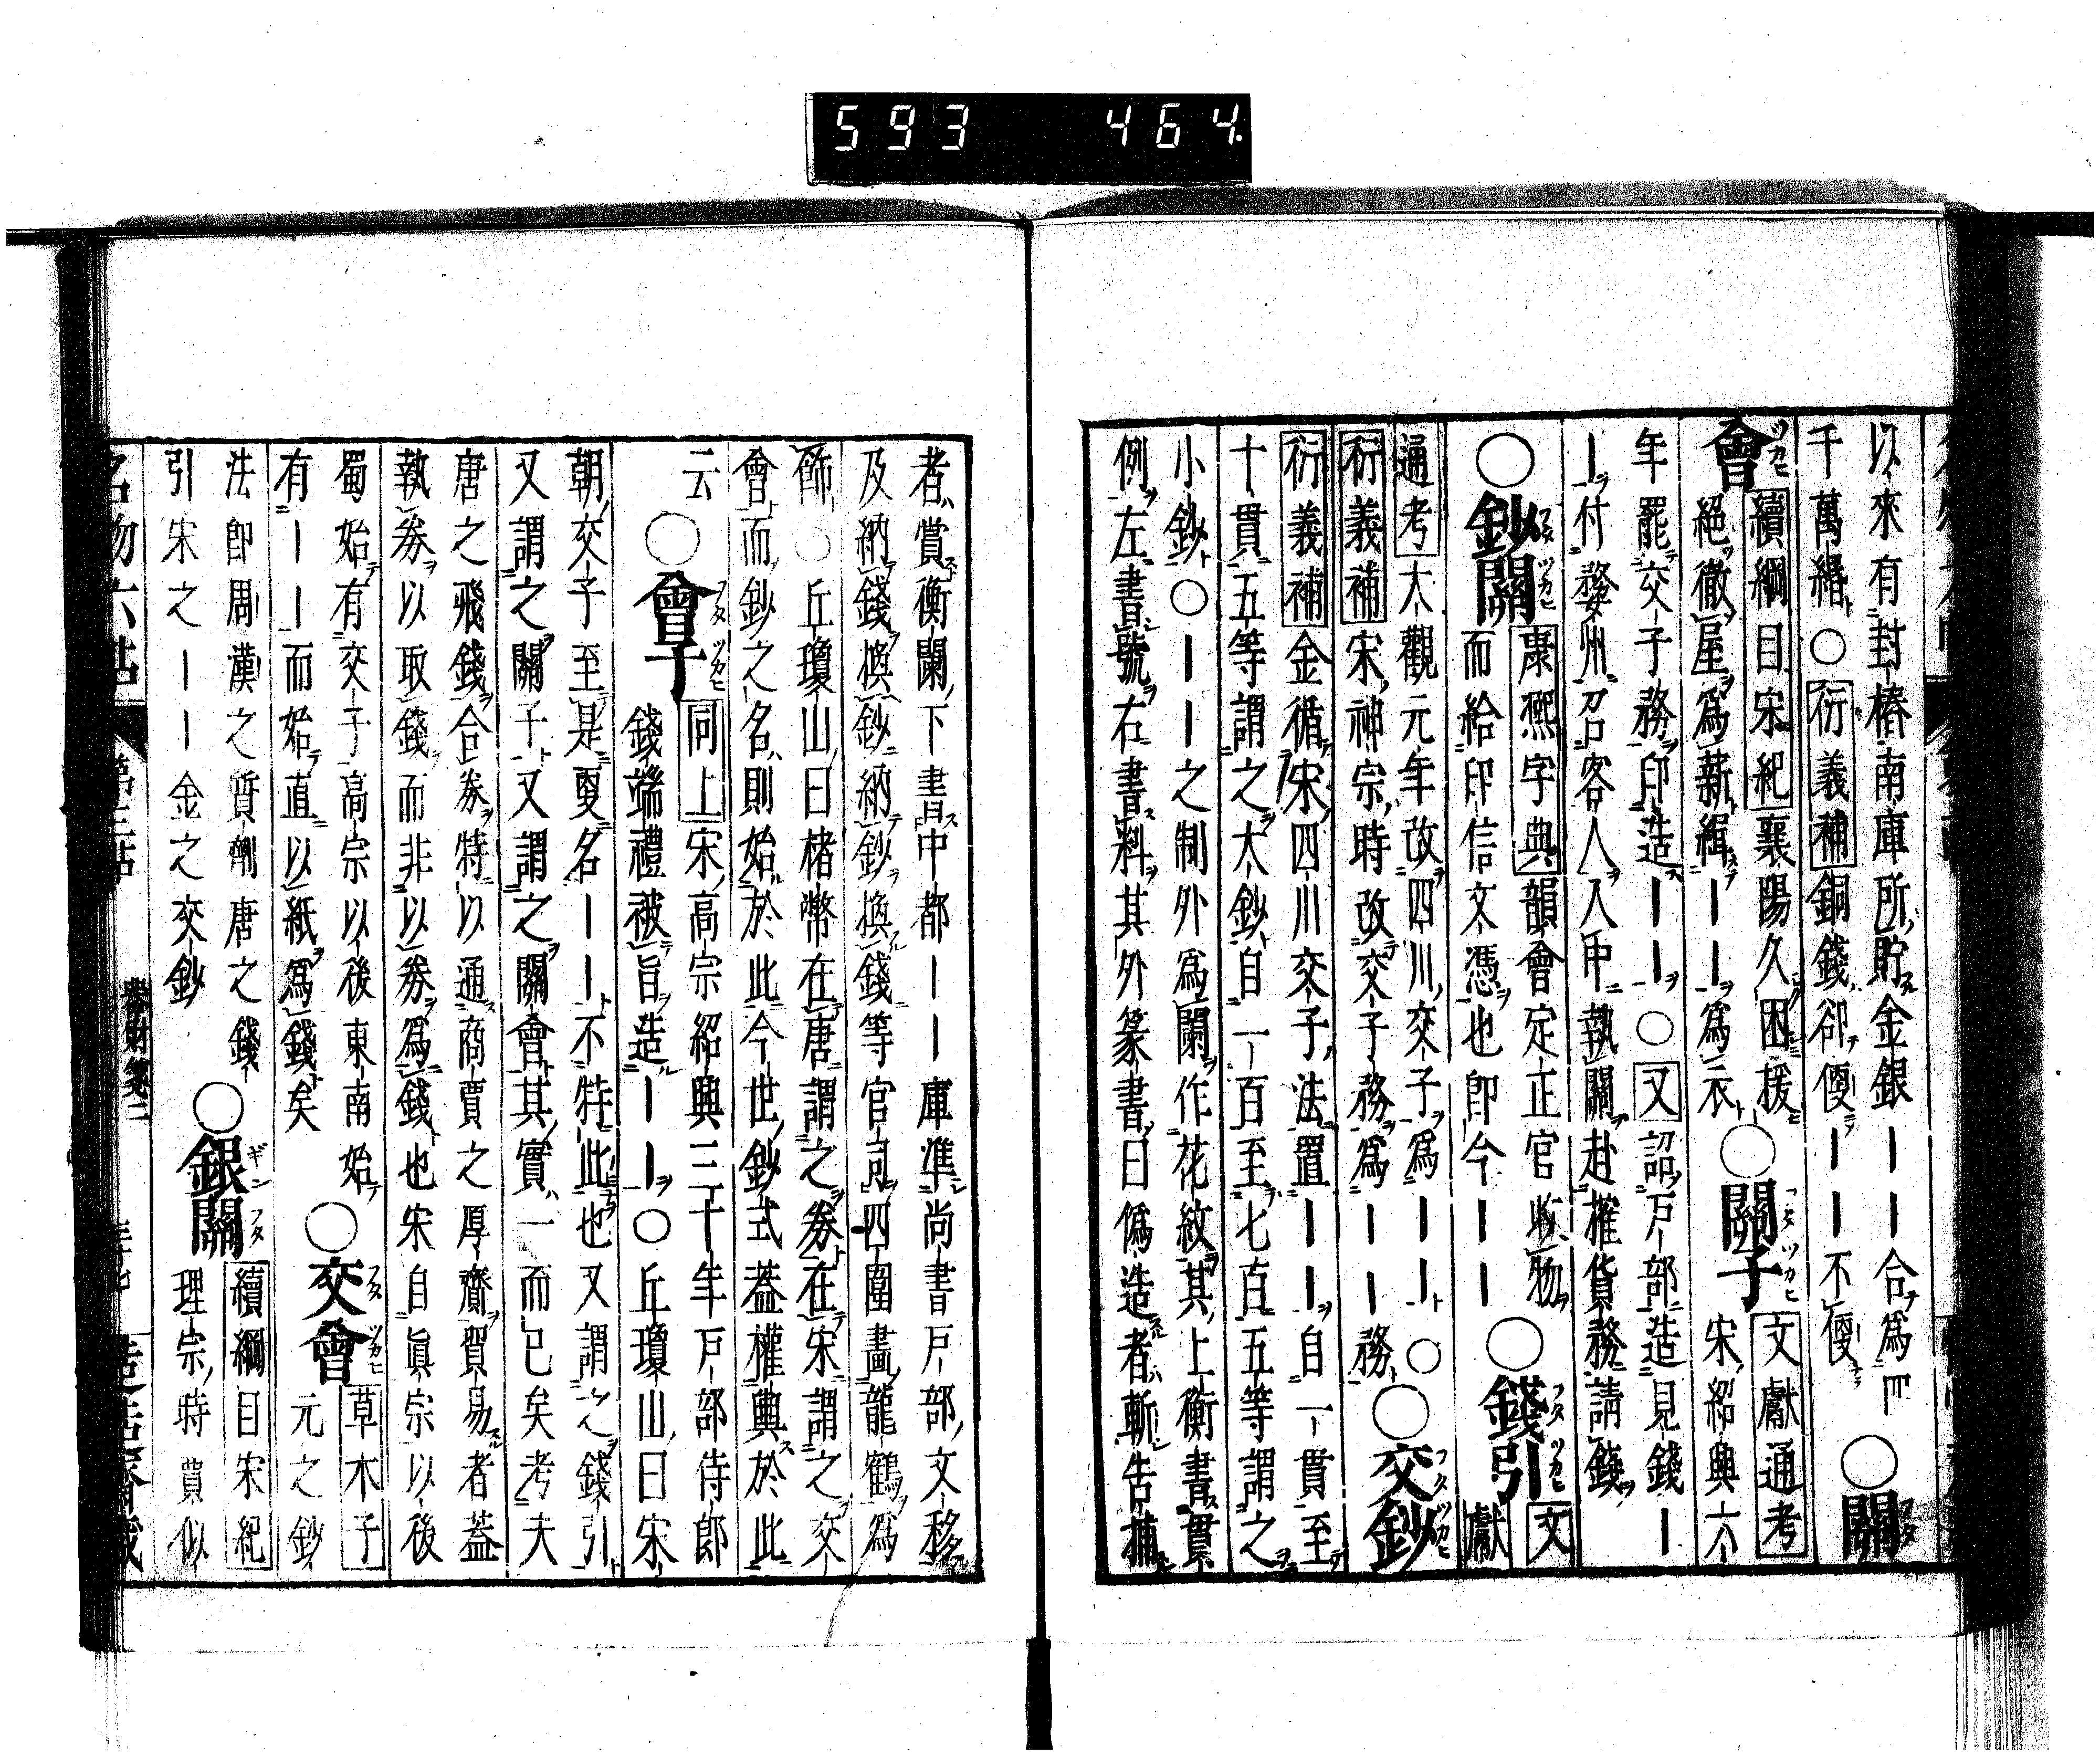 593 464.
以來有封樁南庫所貯金銀｜｜合爲四
千萬緡○衍義補銅錢卻便｜｜不便○關
會續綱目宋紀襄陽久困援
絕徹屋爲薪緝｜｜爲衣○關子文獻通考
宋紹興六
年罷交子務印造｜｜○又詔戶部造見錢｜
｜付婺州召客人入中執關赴榷貨務請錢
○鈔關康熙字典韻會定正官收物
而給印信文憑也卽今｜｜○錢引文
獻
通考大觀元年改四川交子爲｜｜○
衍義補宋神宗時改交子務爲｜｜務○交鈔
衍義補金循宋四川交子法置｜｜自一貫至
十貫五等謂之大鈔自一百至七百五等謂之
小鈔○｜｜之制外爲闌作花紋其上衡書貫
例左書號右書料其外篆書曰僞造者斬告捕
者賞衡闌下書中都｜｜庫準尚書戶部文移
及納錢換鈔納鈔換錢等官司四圍畫龍鶴爲
飾○丘瓊山曰楮幣在唐謂之券在宋謂之交
會而鈔之名則始於此今世鈔式蓋權輿於此
云○會子同上宋高宗紹興三十年戶部侍郎
錢端禮被旨造｜｜○丘瓊山曰宋
朝交子至是更名｜｜不特此也又謂之錢引
又謂之關子又謂之關會其實一而已矣考夫
唐之飛錢合券特以通商賈之厚齎貿易者蓋
執券以取錢而非以券爲錢也宋自眞宗以後
蜀始有交子高宗以後東南始○交會草木子
元之鈔
有｜｜而始直以紙爲錢矣
法卽周漢之質劑唐之錢○銀關續綱目宋紀
理宗時賈似
引宋之｜｜金之交鈔
名物六帖 第三帖 器財箋二